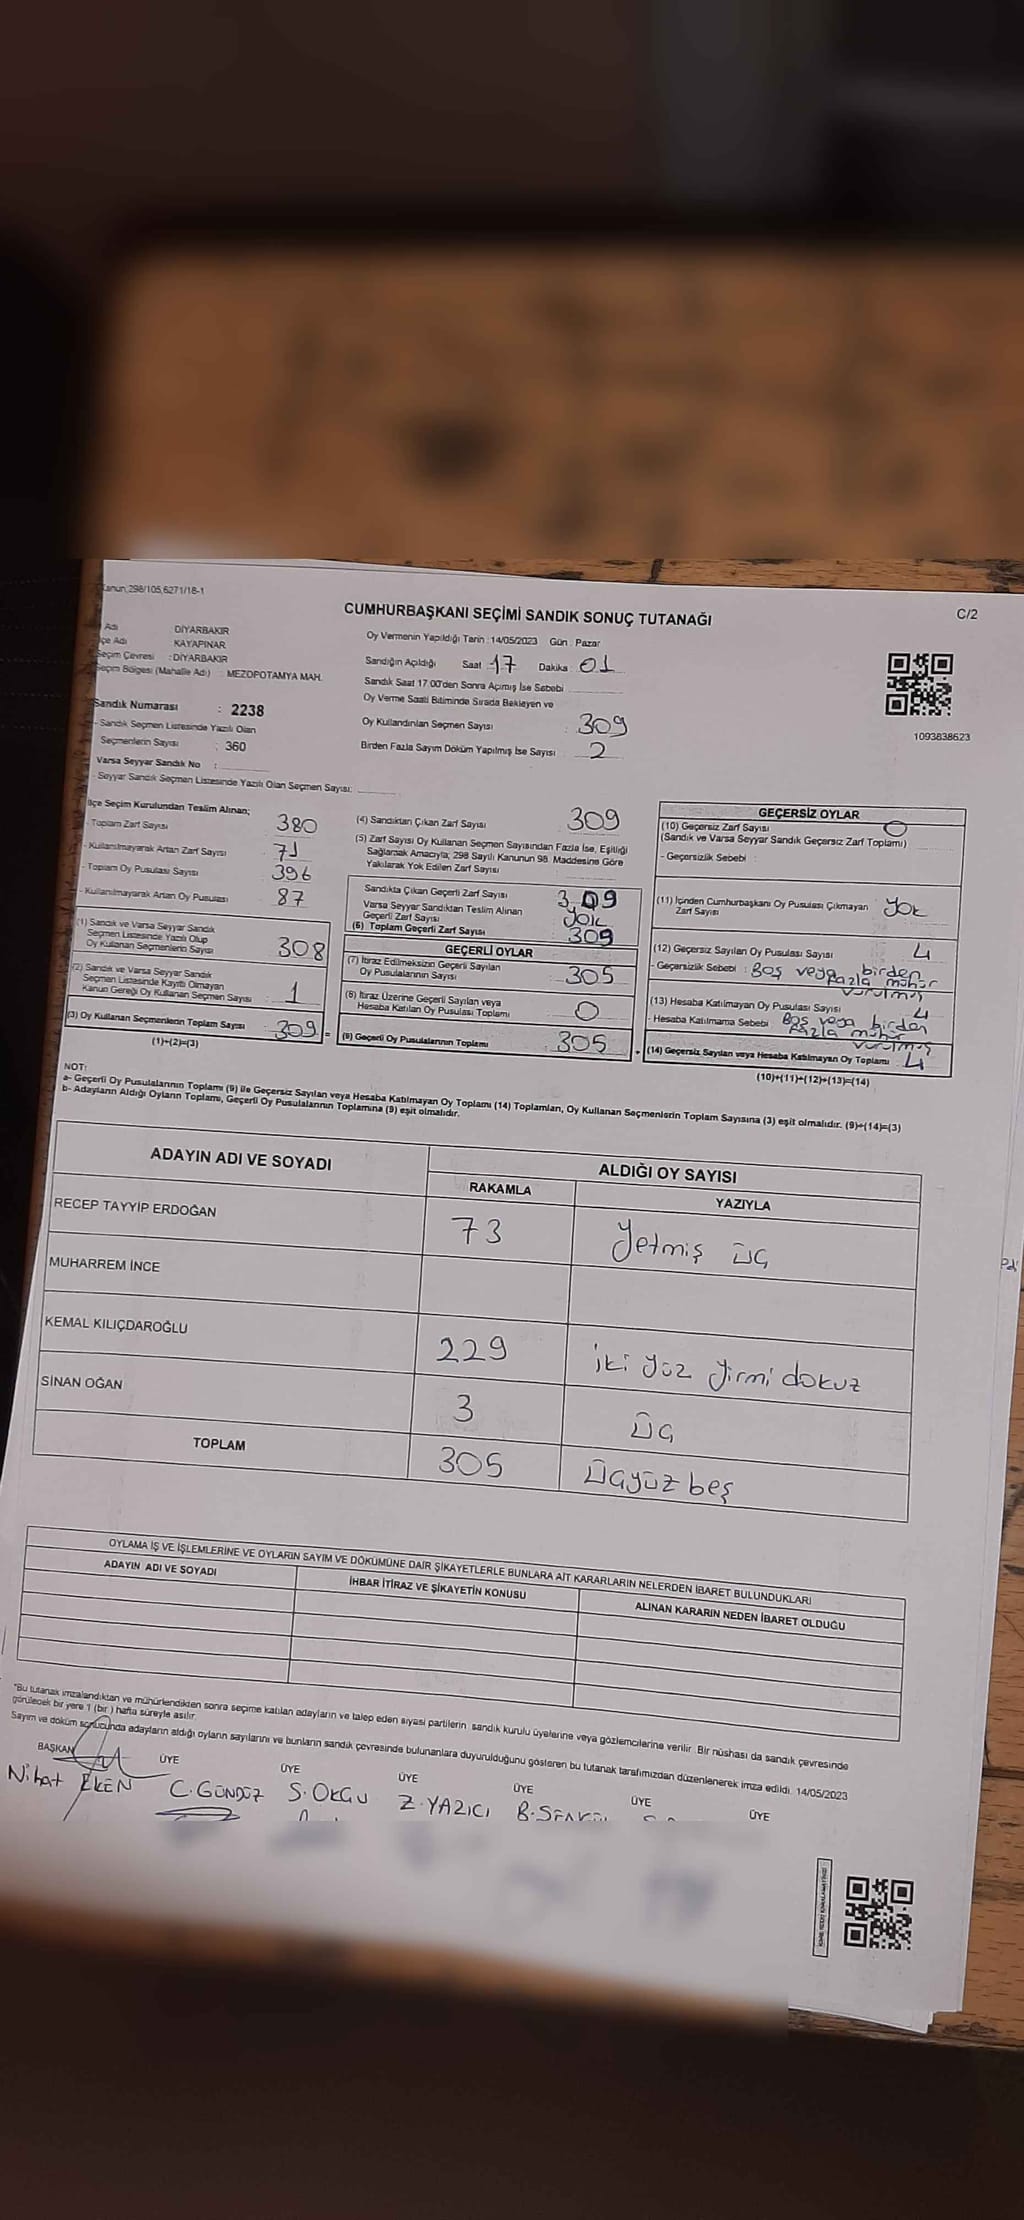 Kanun;298/105,6271/18-1
C/2
CUMHURBAŞKANI SEÇİMİ SANDIK SONUÇ TUTANAĞI
Adı : DİYARBAKIR
İlçe Adı : KAYAPINAR
Seçim Çevresi : DİYARBAKIR
Seçim Bölgesi (Mahalle Adı) : MEZOPOTAMYA MAH.
Sandık Numarası : 2238
- Sandık Seçmen Listesinde Yazılı Olan
Seçmenlerin Sayısı : 360
Varsa Seyyar Sandık No :
- Seyyar Sandık Seçmen Listesinde Yazılı Olan Seçmen Sayısı:
Oy Vermenin Yapıldığı Tarih : 14/05/2023 Gün : Pazar
Sandığın Açıldığı Saat 17 Dakika 01
Sandık Saat 17.00'den Sonra Açılmış İse Sebebi
Oy Verme Saati Bitiminde Sırada Bekleyen ve
Oy Kullandırılan Seçmen Sayısı : 309
Birden Fazla Sayım Döküm Yapılmış İse Sayısı : 2
1093838623
İlçe Seçim Kurulundan Teslim Alınan;
- Toplam Zarf Sayısı 380
- Kullanılmayarak Artan Zarf Sayısı 71
- Toplam Oy Pusulası Sayısı 396
- Kullanılmayarak Artan Oy Pusulası 87
(1) Sandık ve Varsa Seyyar Sandık
Seçmen Listesinde Yazılı Olup
Oy Kullanan Seçmenlerin Sayısı 308
(2) Sandık ve Varsa Seyyar Sandık
Seçmen Listesinde Kayıtlı Olmayan
Kanun Gereği Oy Kullanan Seçmen Sayısı 1
(3) Oy Kullanan Seçmenlerin Toplam Sayısı 309 =
(1)+(2)=(3)
(4) Sandıktan Çıkan Zarf Sayısı 309
(5) Zarf Sayısı Oy Kullanan Seçmen Sayısından Fazla İse, Eşitliği
Sağlamak Amacıyla, 298 Sayılı Kanunun 98. Maddesine Göre
Yakılarak Yok Edilen Zarf Sayısı
Sandıkta Çıkan Geçerli Zarf Sayısı 309
Varsa Seyyar Sandıktan Teslim Alınan
Geçerli Zarf Sayısı yok
(6) Toplam Geçerli Zarf Sayısı 309
GEÇERLİ OYLAR
(7) İtiraz Edilmeksizin Geçerli Sayılan
Oy Pusulalarının Sayısı : 305
(8) İtiraz Üzerine Geçerli Sayılan veya
Hesaba Katılan Oy Pusulası Toplamı : 0
(9) Geçerli Oy Pusulalarının Toplamı : 305 +
GEÇERSİZ OYLAR
(10) Geçersiz Zarf Sayısı 0
(Sandık ve Varsa Seyyar Sandık Geçersiz Zarf Toplamı)
- Geçersizlik Sebebi :
(11) İçinden Cumhurbaşkanı Oy Pusulası Çıkmayan
Zarf Sayısı yok
(12) Geçersiz Sayılan Oy Pusulası Sayısı 4
- Geçersizlik Sebebi : Boş veya birden
fazla mühür
vurulmuş
(13) Hesaba Katılmayan Oy Pusulası Sayısı 4
- Hesaba Katılmama Sebebi : Boş veya birden
fazla mühür
vurulmuş
(14) Geçersiz Sayılan veya Hesaba Katılmayan Oy Toplamı : 4
(10)+(11)+(12)+(13)=(14)
NOT:
a- Geçerli Oy Pusulalarının Toplamı (9) ile Geçersiz Sayılan veya Hesaba Katılmayan Oy Toplamı (14) Toplamları, Oy Kullanan Seçmenlerin Toplam Sayısına (3) eşit olmalıdır. (9)+(14)=(3)
b- Adayların Aldığı Oyların Toplamı, Geçerli Oy Pusulalarının Toplamına (9) eşit olmalıdır.
ADAYIN ADI VE SOYADI
ALDIĞI OY SAYISI
RAKAMLA YAZIYLA
RECEP TAYYİP ERDOĞAN 73 yetmiş üç
MUHARREM İNCE
KEMAL KILIÇDAROĞLU 229 iki yüz yirmi dokuz
SİNAN OĞAN 3 üç
TOPLAM 305 üçyüz beş
OYLAMA İŞ VE İŞLEMLERİNE VE OYLARIN SAYIM VE DÖKÜMÜNE DAİR ŞİKAYETLERLE BUNLARA AİT KARARLARIN NELERDEN İBARET BULUNDUKLARI
ADAYIN ADI VE SOYADI
İHBAR İTİRAZ VE ŞİKAYETİN KONUSU
ALINAN KARARIN NEDEN İBARET OLDUĞU
"Bu tutanak imzalandıktan ve mühürlendikten sonra seçime katılan adayların ve talep eden siyasi partilerin sandık kurulu üyelerine veya gözlemcilerine verilir. Bir nüshası da sandık çevresinde
görülecek bir yere 1 (bir) hafta süreyle asılır.
Sayım ve döküm sonucunda adayların aldığı oyların sayılarını ve bunların sandık çevresinde bulunanlara duyurulduğunu gösteren bu tutanak tarafımızdan düzenlenerek imza edildi. 14/05/2023
BAŞKAN ÜYE ÜYE ÜYE ÜYE ÜYE ÜYE
Nihat EKEN C.GÜNDÜZ S.OKGU Z.YAZICI